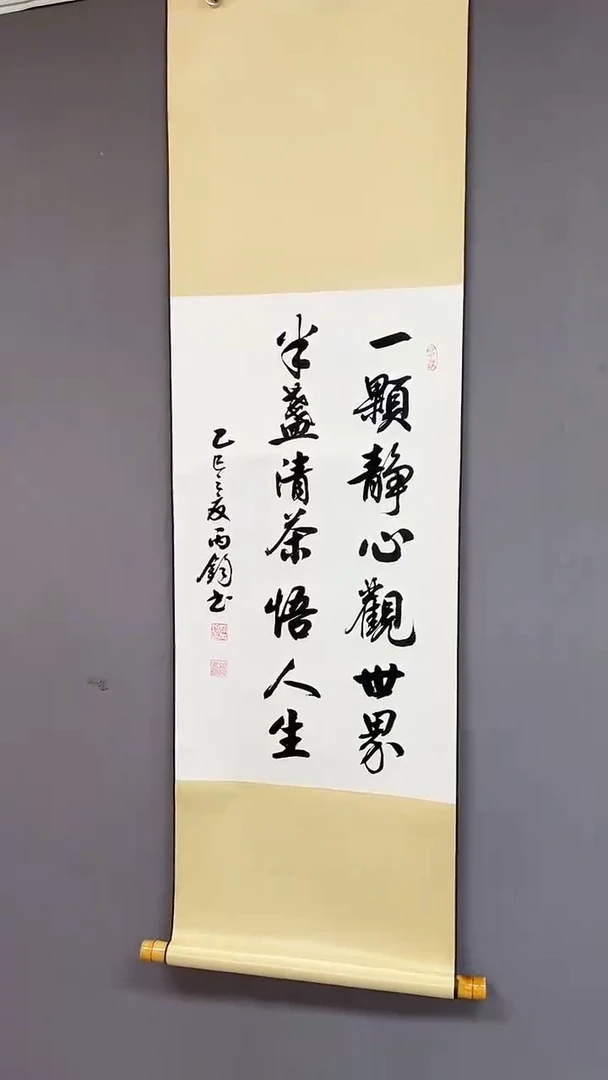 一顆静心觀世界
半盞清茶悟人生
乙巳之夏丙鈞书